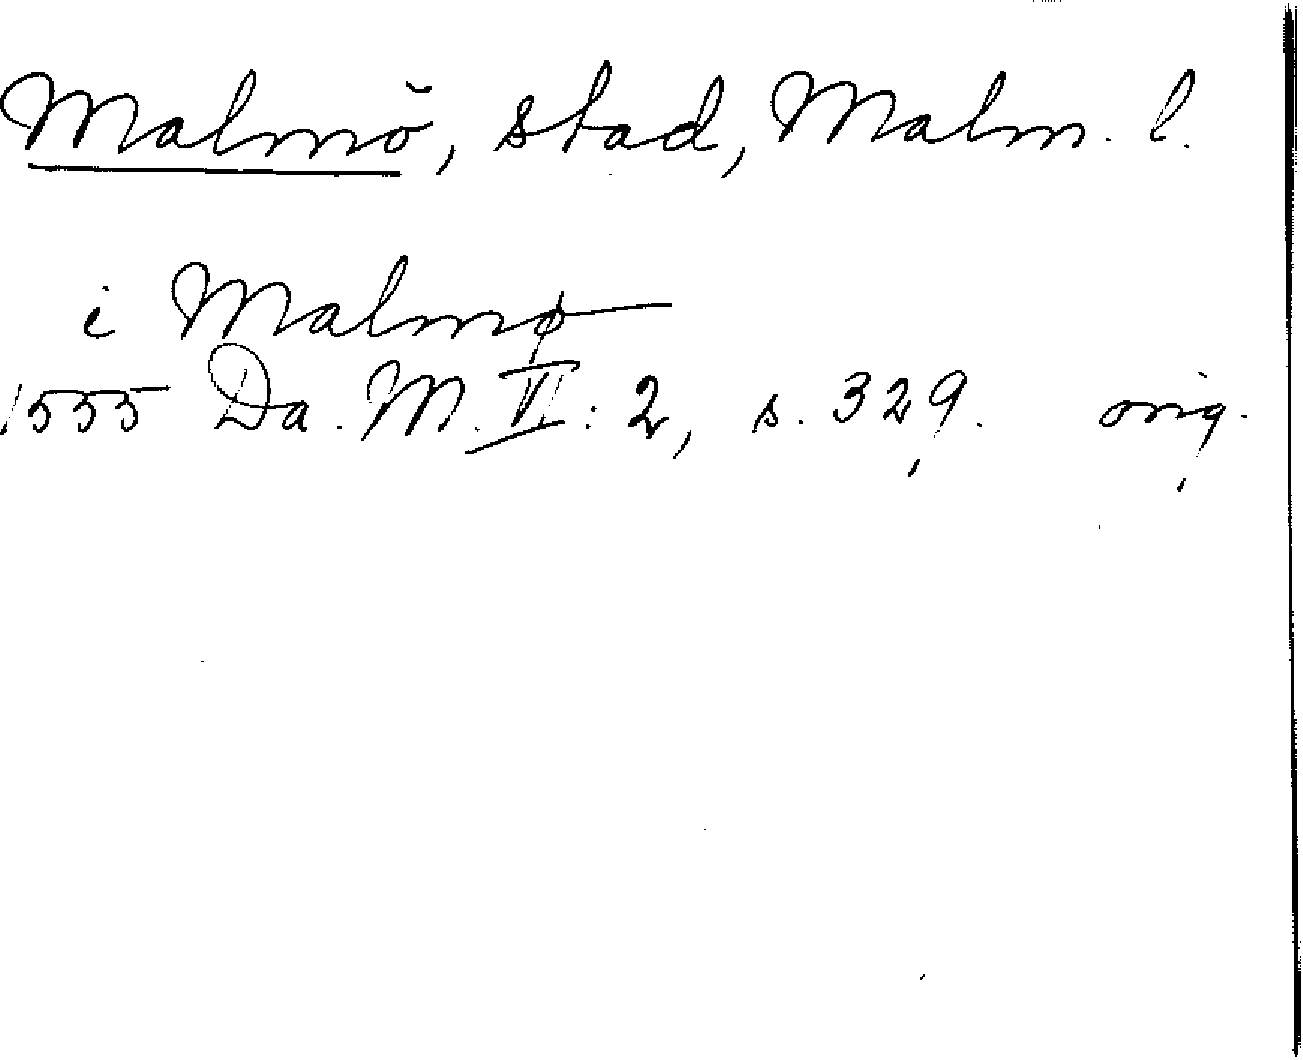 Malmö, stad, Malm. l.
i Malmø
1555 Da. M. VI: 2, s. 329. orig.